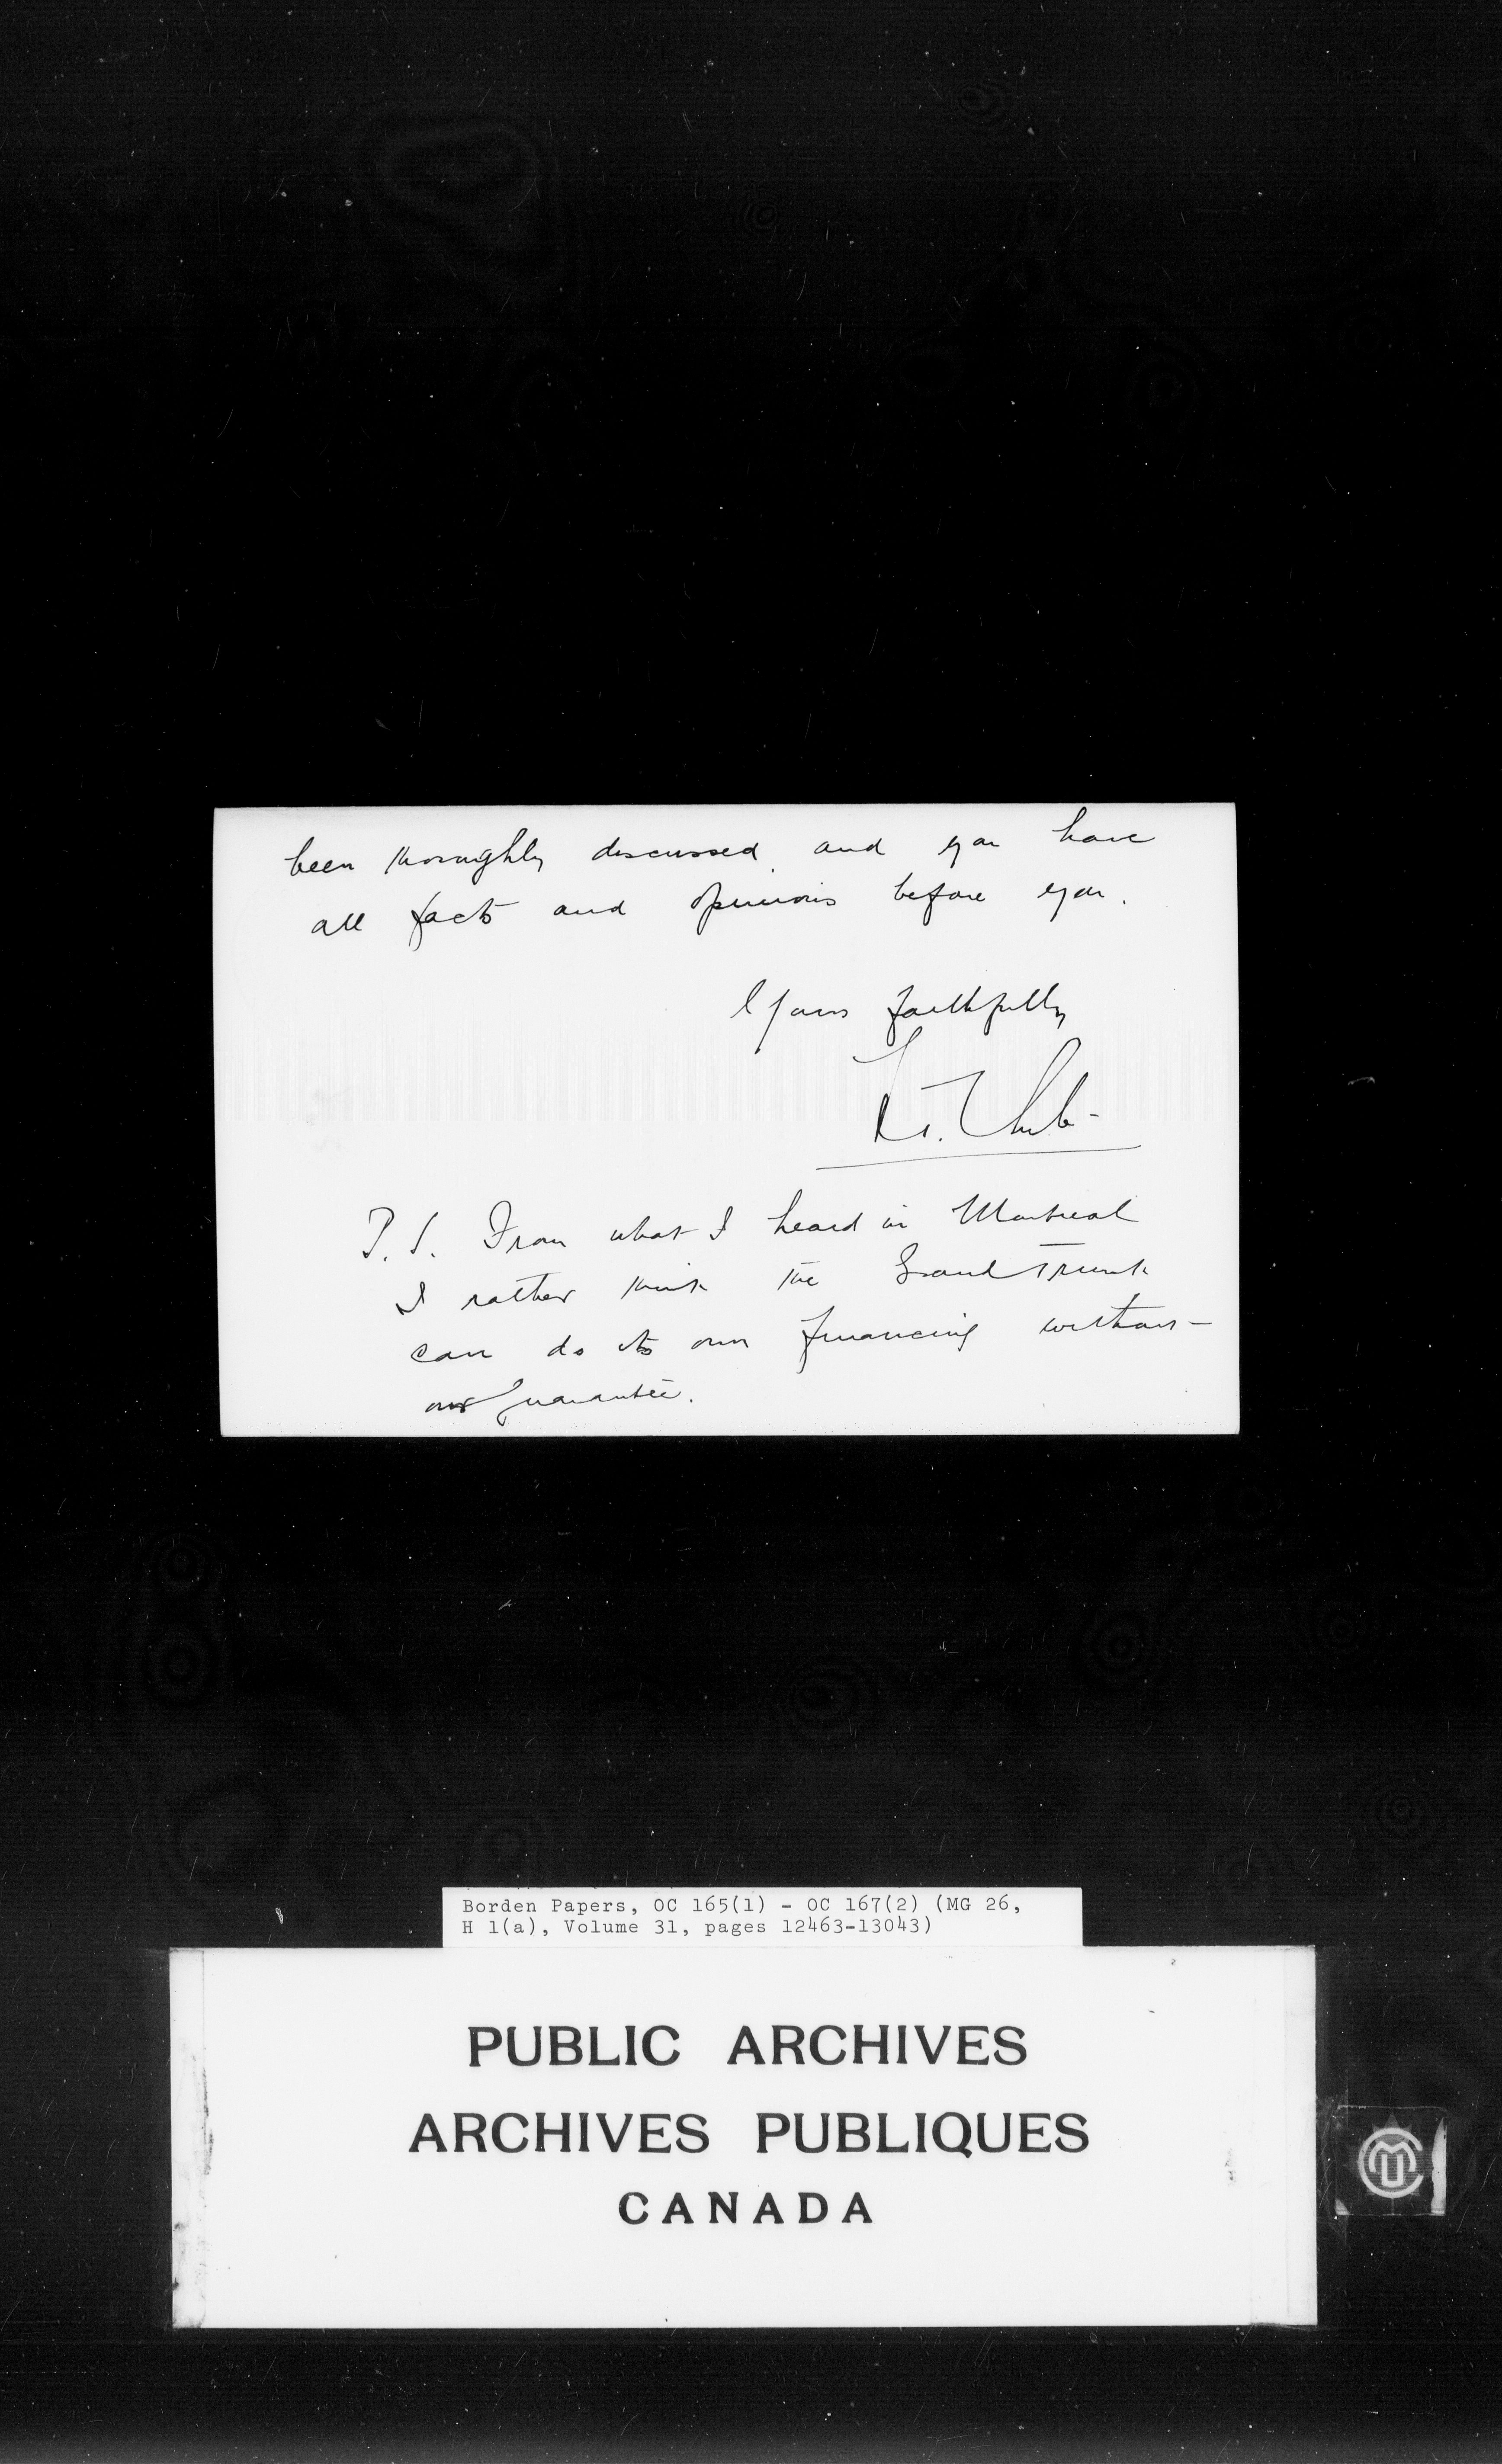 been thoroughly discussed and you have
all facts and opinions before you.
Yours faithfully
W. T. White
P.S. From what I heard in Montreal
I rather think the Grand Trunk
can do its own financing without
our guarantee.
Borden Papers, OC 165(1) - OC 167(2) (MG 26,
H 1(a), Volume 31, pages 12463-13043)
PUBLIC ARCHIVES
ARCHIVES PUBLIQUES
CANADA